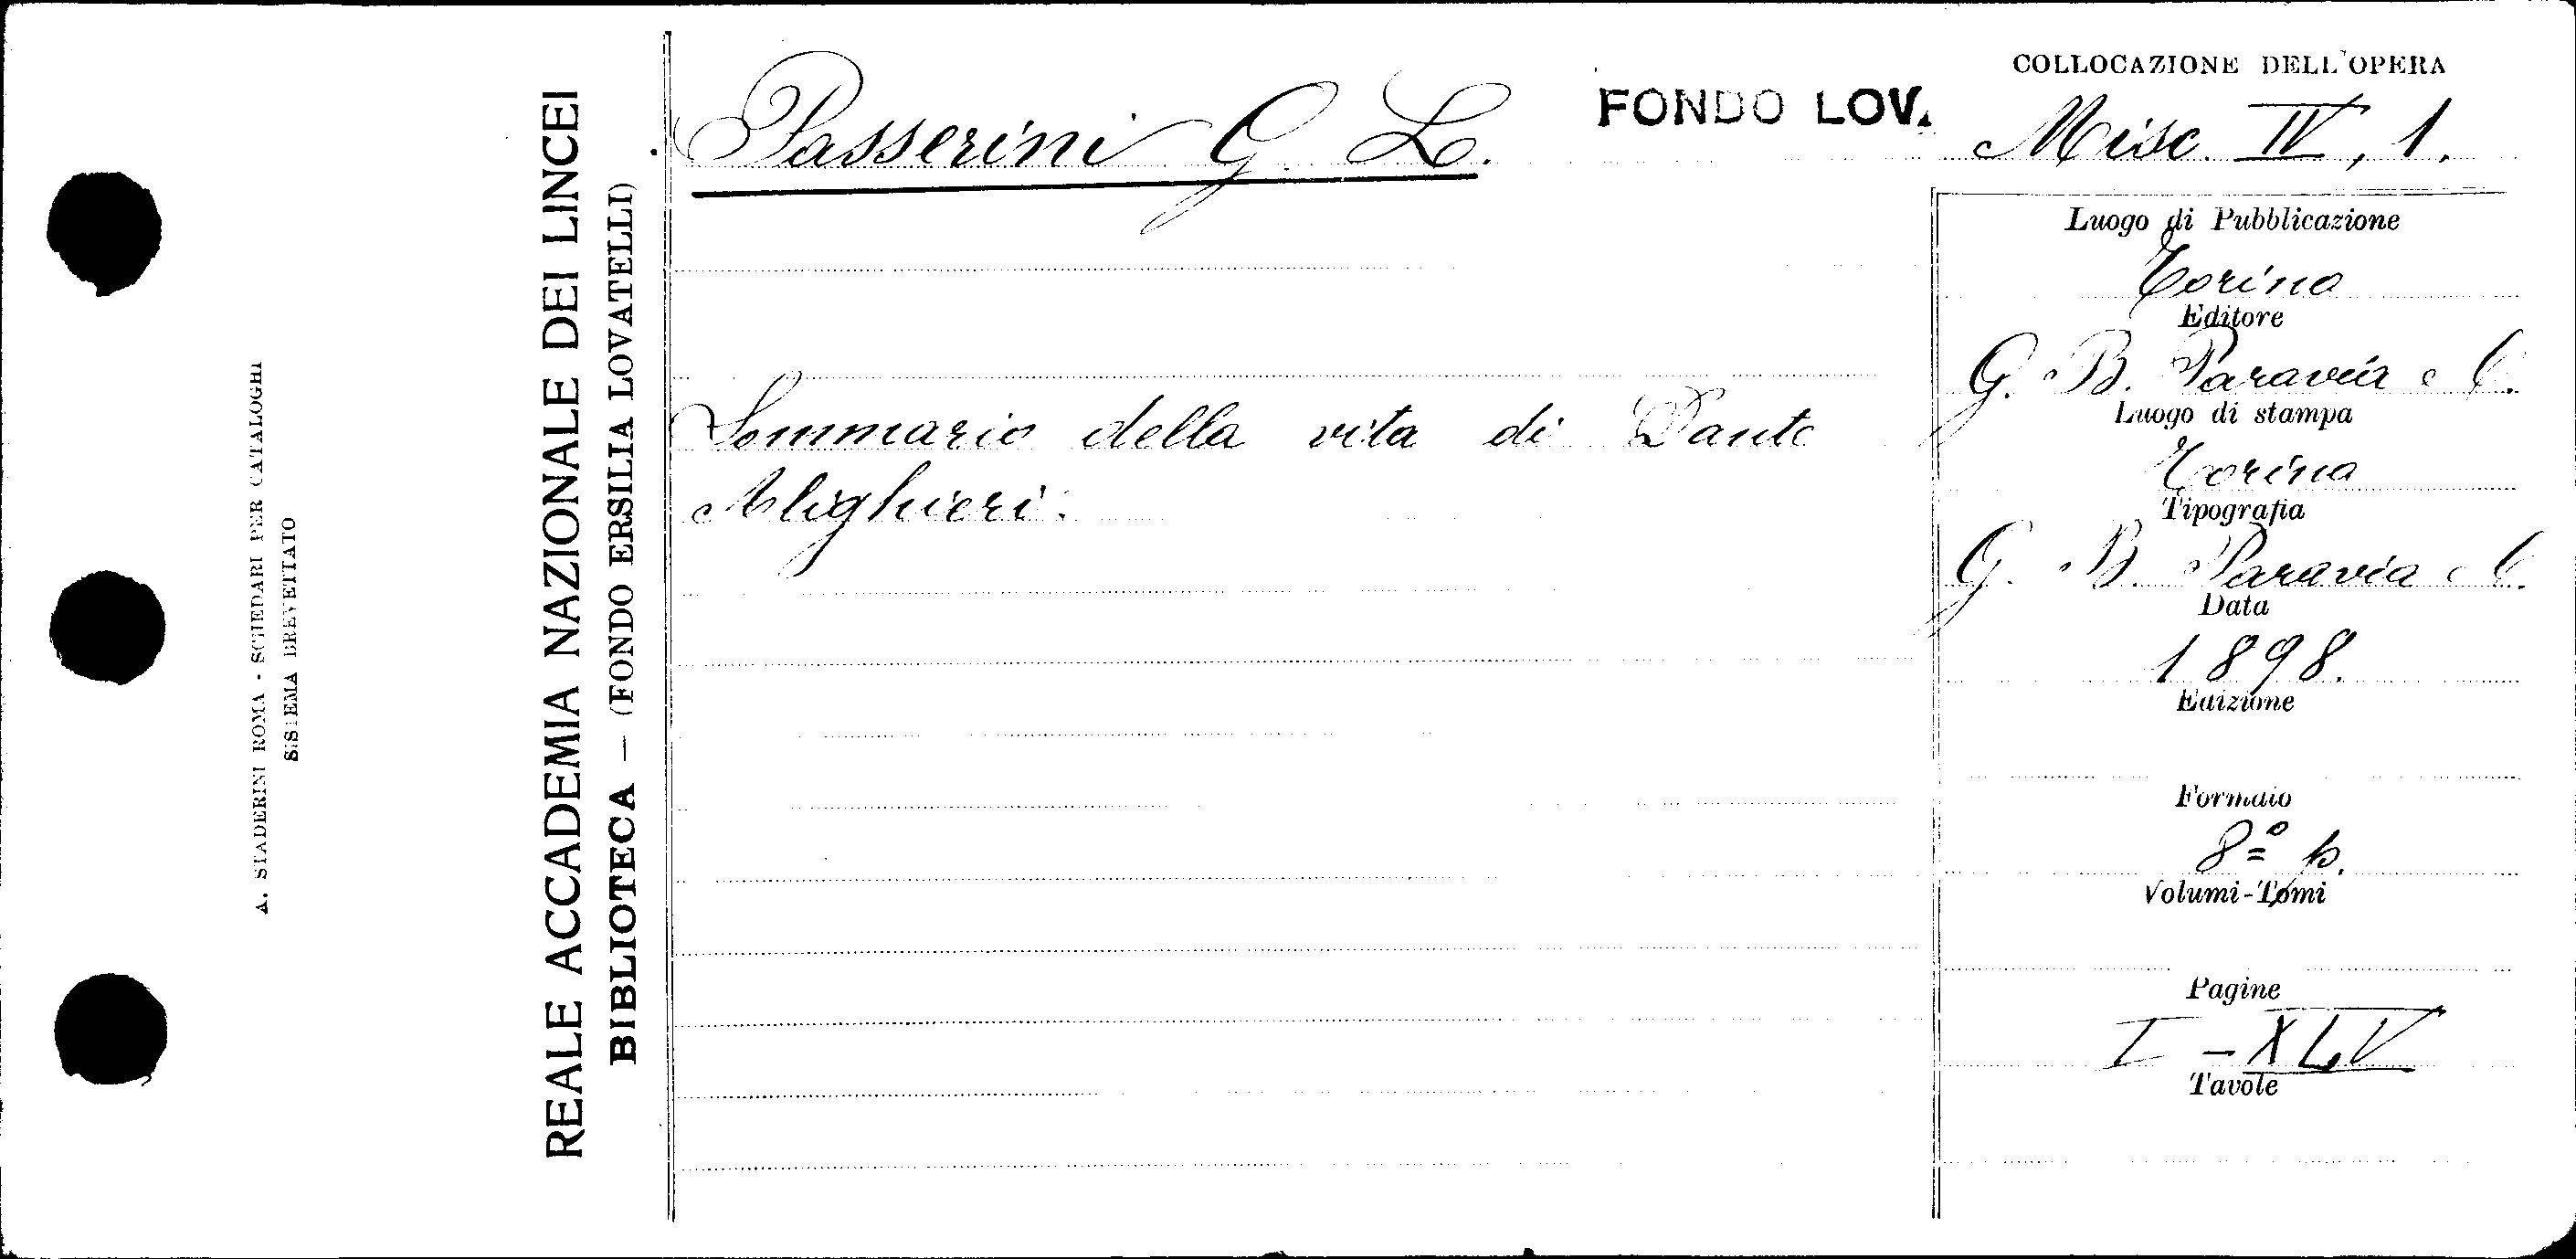 A. STADERINI ROMA - SCHEDARI PER CATALOGHI
SISTEMA BREVETTATO
REALE ACCADEMIA NAZIONALE DEI LINCEI
BIBLIOTECA — (FONDO ERSILIA LOVATELLI)
Passerini G. L.
FONDO LOV.
Sommario della vita di Dante
Alighieri.
COLLOCAZIONE DELL'OPERA
Misc. IV, 1.
Luogo di Pubblicazione
Torino
Editore
G. B. Paravia e C.
Luogo di stampa
Torino
Tipografia
G. B. Paravia e C.
Data
1898.
Edizione
Formato
8º p.
Volumi-Tomi
Pagine
I - XLV
Tavole